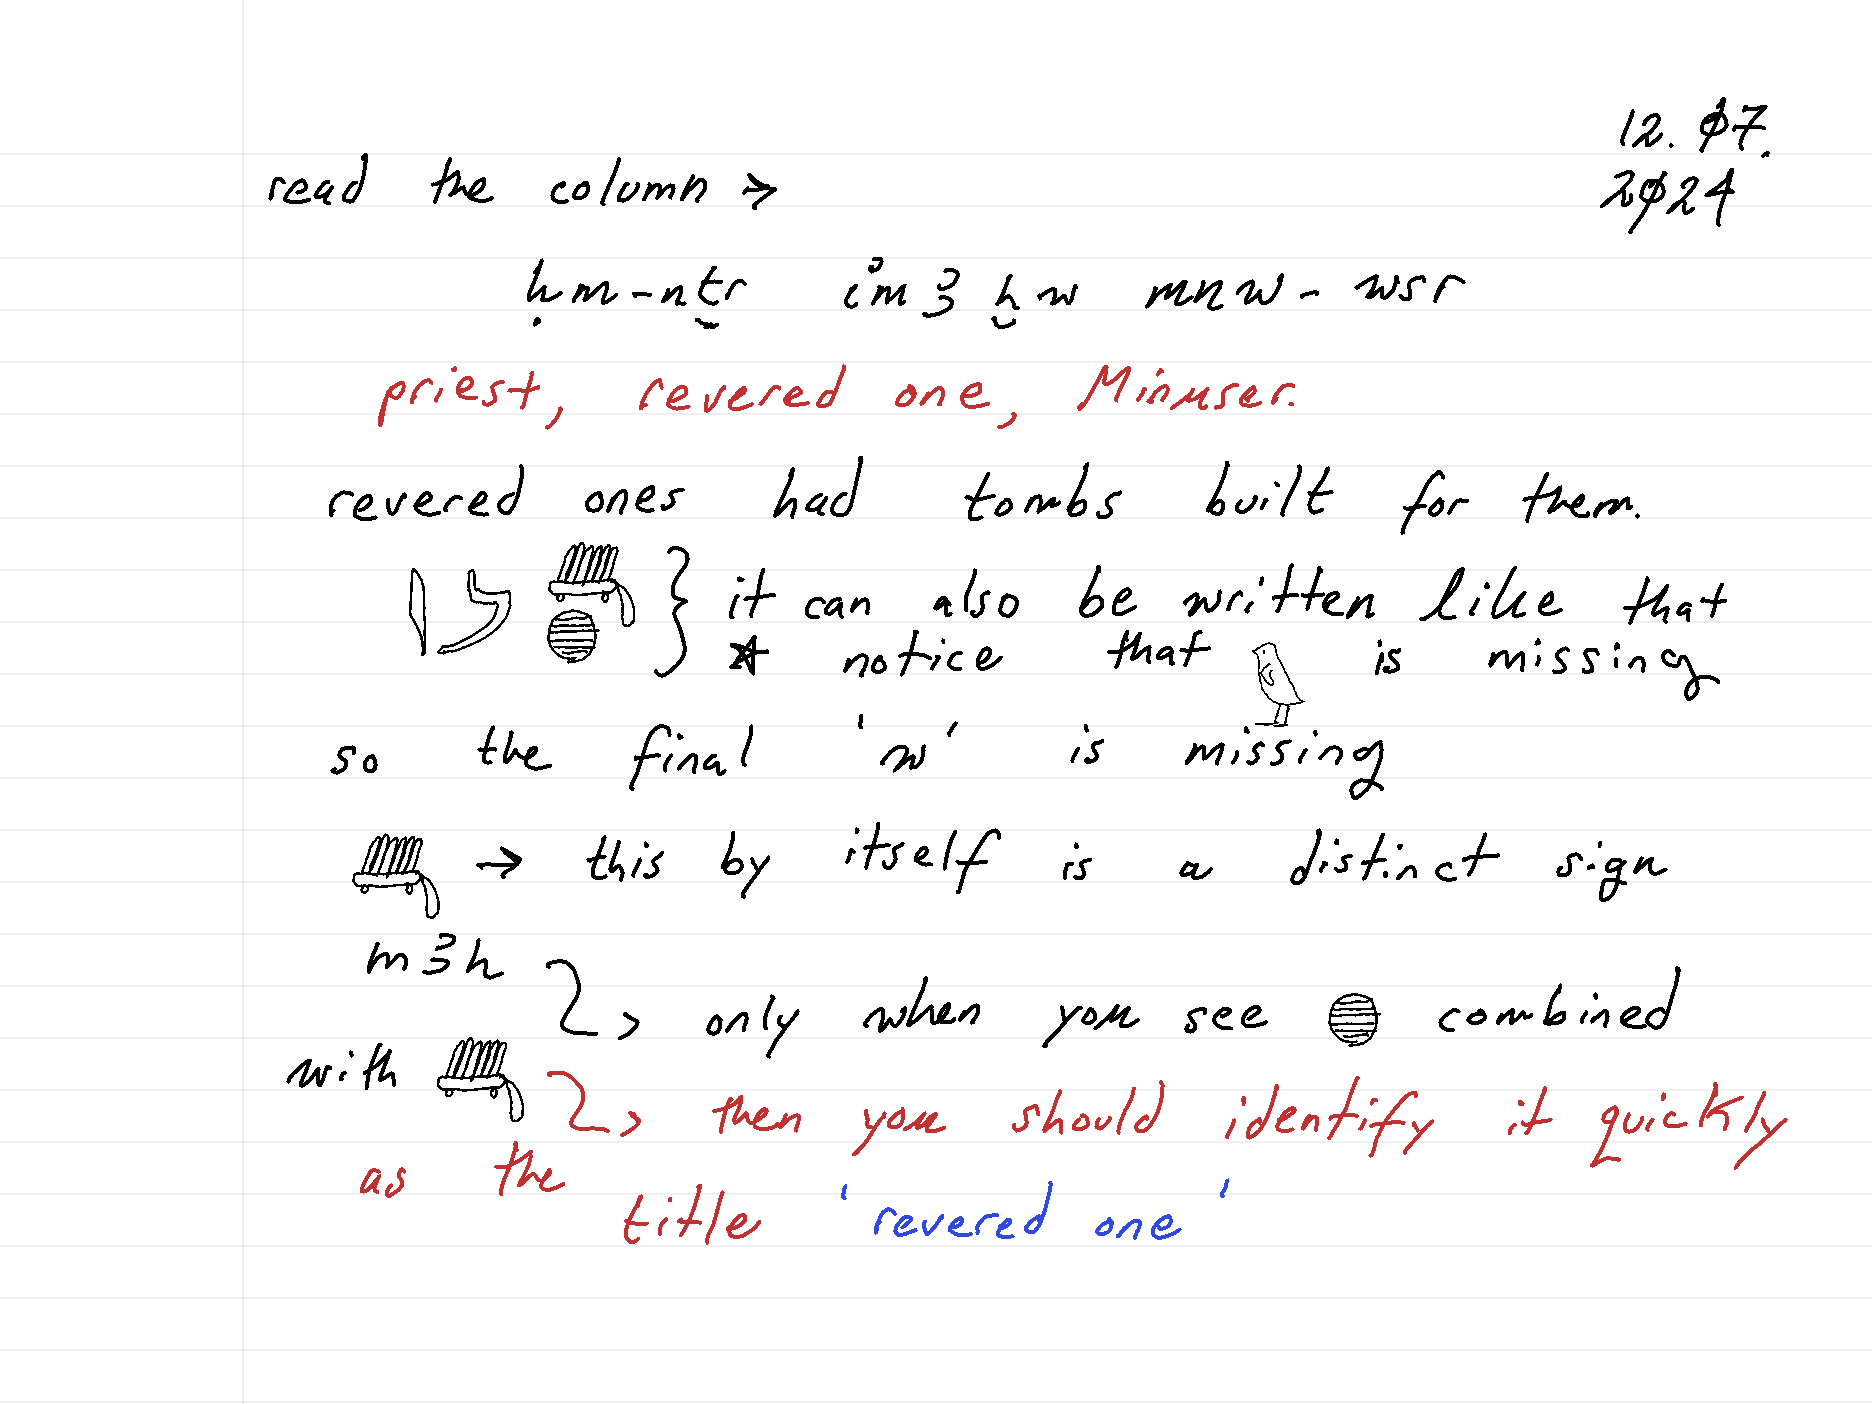 12.07.
2024
read the column →
ḥm-nṯr i҆mꜣḫw mnw-wsr
priest, revered one, Minuser.
revered ones had tombs built for them.
it can also be written like that
★ notice that is missing
so the final 'w' is missing
→ this by itself is a distinct sign
m3h
only when you see combined
with
then you should identify it quickly
as the
title 'revered one'